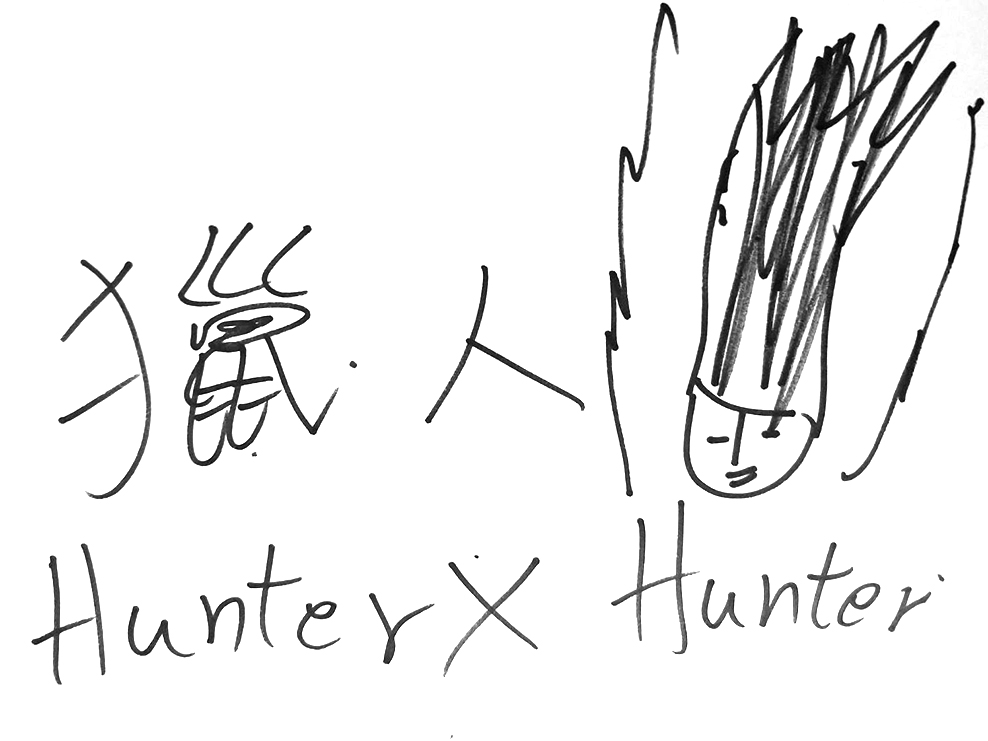 獵人
Hunter X Hunter